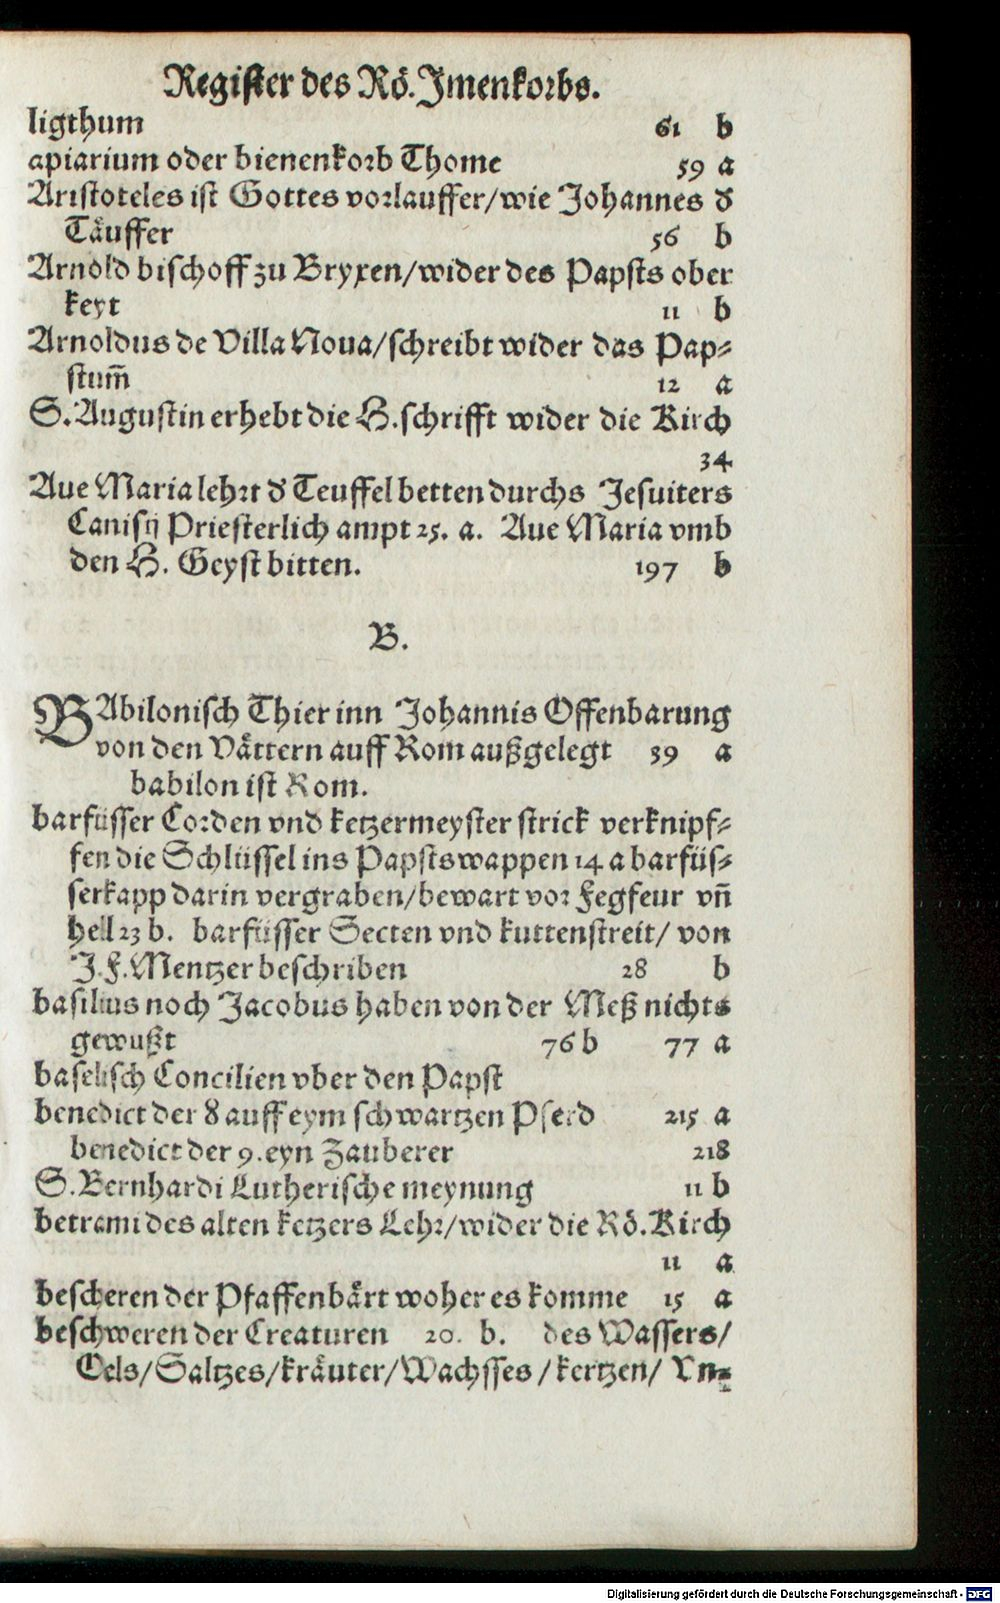 Register des Rö. Jmenkorbs.
ligthum 61 b
apiarium oder bienenkorb Thome 59 a
Aristoteles ist Gottes vorlauffer/wie Johannes d̕
Täuffer 56 b
Arnold bischoff zu Bryxen/wider des Papsts ober
keyt 11 b
Arnoldus de Villa Noua/schreibt wider das Pap⸗
stum̃ 12 a
S. Augustin erhebt die H. schrifft wider die Kirch
34
Aue Maria lehrt d̕ Teuffel betten durchs Jesuiters
Canisij Priesterlich ampt 25. a. Aue Maria vmb
den H. Geyst bitten. 197 b
B.
BAbilonisch Thier inn Johannis Offenbarung
von den Vättern auff Rom außgelegt 39 a
babilon ist Rom.
barfüsser Corden vnd ketzermeyster strick verknipf⸗
fen die Schlüssel ins Papsts wappen 14 a barfüs⸗
serkapp darin vergraben/bewart vor Fegfeur vñ
hell 23 b. barfüsser Secten vnd kuttenstreit/ von
J. F. Mentzer beschriben 28 b
basilius noch Jacobus haben von der Meß nichts
gewußt 76 b 77 a
baselisch Concilien vber den Papst
benedict der 8 auff eym schwartzen Pferd 215 a
benedict der 9. eyn Zauberer 218
S. Bernhardi Lutherische meynung 11 b
betrami des alten ketzers Lehr/wider die Rö. Kirch
11 a
bescheren der Pfaffenbärt woher es komme 15 a
beschweren der Creaturen 20. b. des Wassers/
Oels/Saltzes/kräuter/Wachsses/kertzen/ Vn⸗
Digitalisierung gefördert durch die Deutsche Forschungsgemeinschaft - DFG